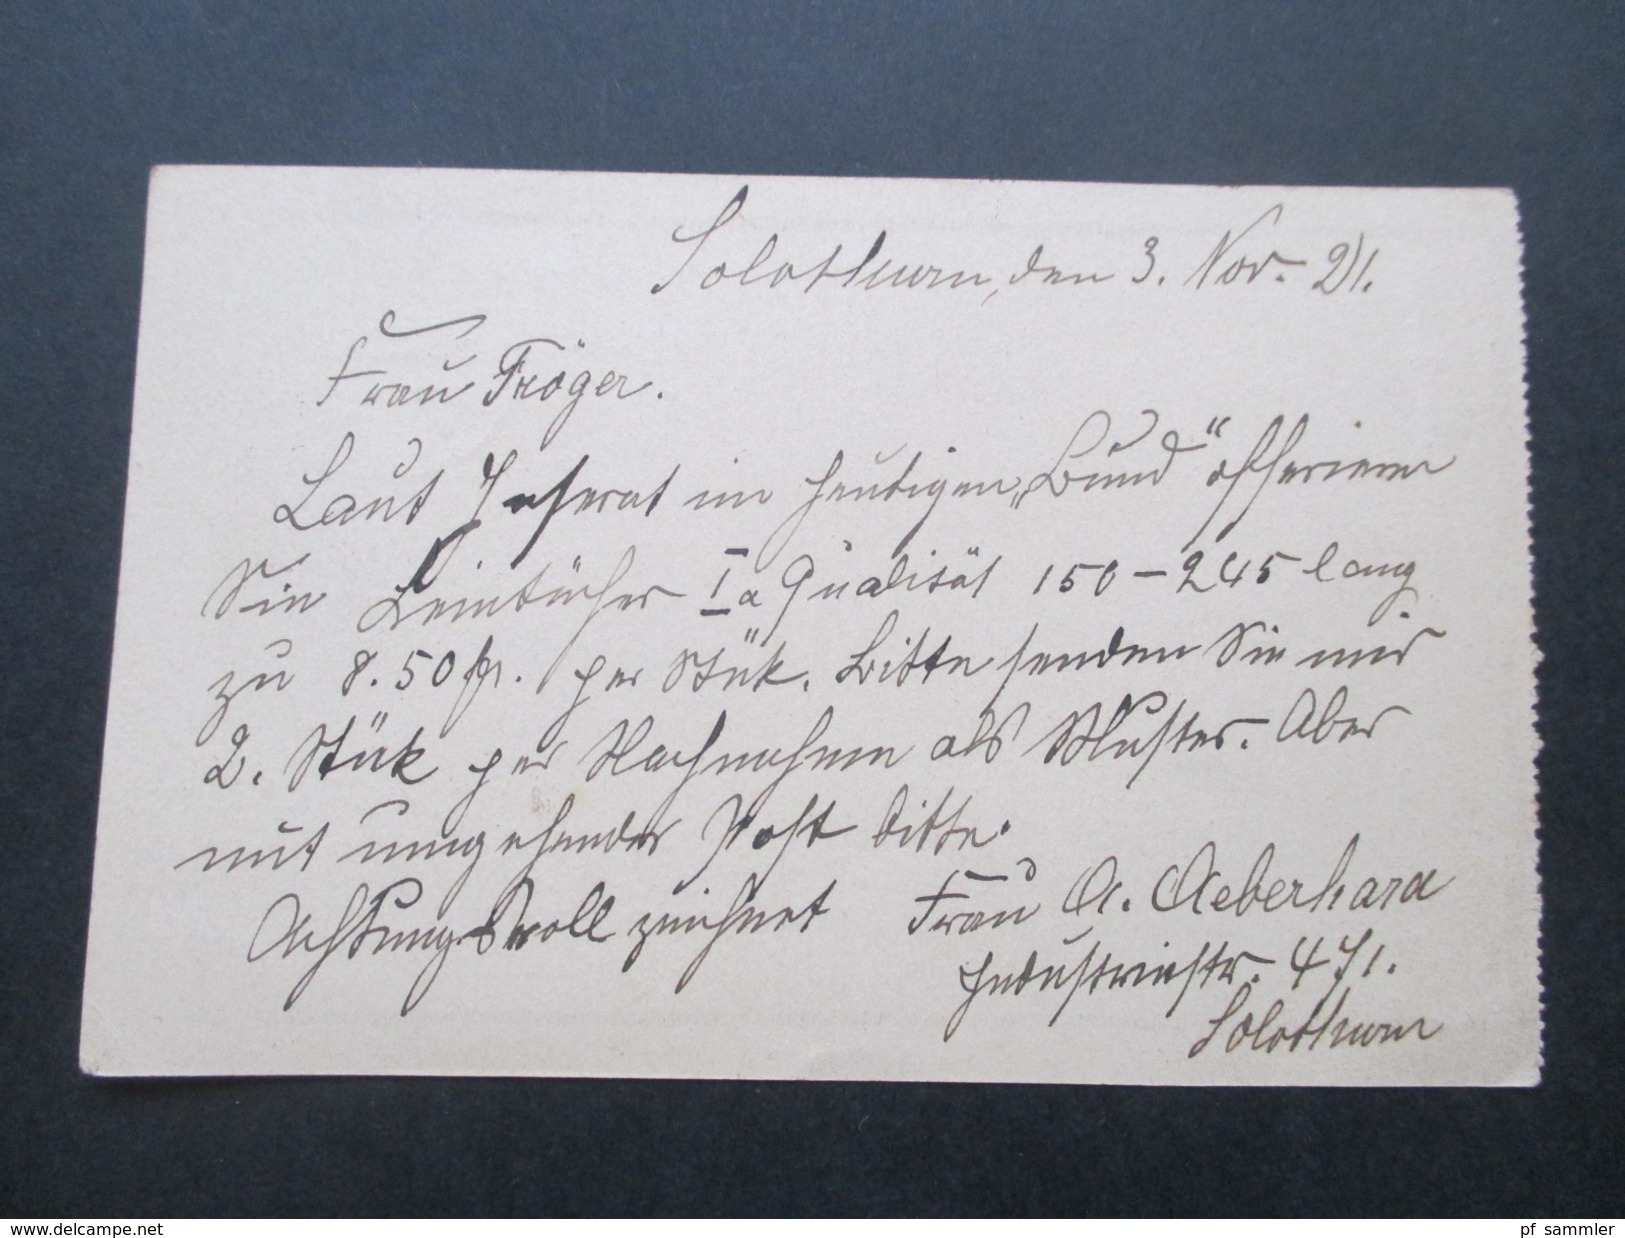 Solothurn, den 3. Nov. 21.
Frau Tröger.
Laut Inserat im heutigen „Bund“ offerieren
Sie Leintücher Ia Qualität 150-245 lang
zu 8.50 fr. per Stük. Bitte senden Sie mir
2. Stük per Nachnahme als Muster. Aber
mit umgehender Post bitte.
Achtungsvoll zeichnet Frau A. Aeberhard
Industriestr. 471.
Solothurn
www.delcampe.net
pf_sammler